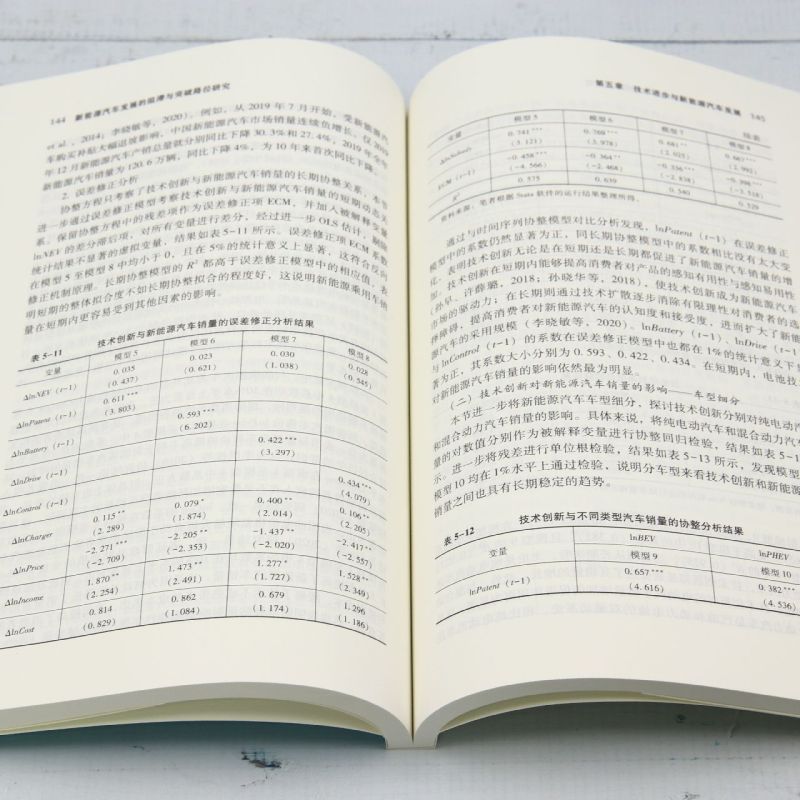 144 新能源汽车发展的阻滞与突破路径研究
et al., 2014；李晓敏等，2020）。例如，从2019年7月开始，受新能源汽
车购买补贴大幅退坡影响，中国新能源汽车市场销量连续负增长，仅2019
年12月新能源汽车产销总量就分别同比下降30.3%和27.4%，2019年全年
新能源汽车销量为120.6万辆，同比下降4%，为10年来首次同比下降。
2. 误差修正分析
协整方程只考察了技术创新与新能源汽车销量的长期协整关系，本节
进一步通过误差修正模型考察技术创新与新能源汽车销量的短期动态关
系。保留协整方程中的残差项作为误差修正项ECM，并加入被解释变量
lnNEV的差分滞后项，对所有变量进行差分，经过进一步OLS估计，剔除
统计结果不显著的虚拟变量，结果如表5-11所示。误差修正项ECM系数
在模型5至模型8中均小于0，只在5%的统计意义上显著，这符合反向
修正机制原理。长期协整模型的R²都高于误差修正模型中的相应值，表
明短期的整体拟合度不如长期协整拟合的程度好，这说明新能源乘用车销
量在短期内更容易受到其他因素的影响。
表5-11 技术创新与新能源汽车销量的误差修正分析结果
变量 模型5 模型6 模型7 模型8
ΔlnNEV (t-1) 0.035 0.023 0.030 0.028
(0.437) (0.621) (1.038) (0.545)
ΔlnPatent (t-1) 0.611***
(3.803)
ΔlnBattery (t-1) 0.593***
(6.202)
ΔlnDrive (t-1) 0.422***
(3.297)
ΔlnControl (t-1) 0.434***
(4.079)
ΔlnCharger 0.115** 0.079* 0.400** 0.106**
(2.289) (1.874) (2.014) (2.205)
ΔlnPrice -2.271*** -2.205** -1.437** -2.417**
(-2.709) (-2.353) (-2.020) (-2.557)
ΔlnIncome 1.870** 1.473** 1.277* 1.528**
(2.254) (2.491) (1.727) (2.349)
ΔlnCost 0.814 0.862 0.679 1.296
(0.829) (1.084) (1.174) (1.186)
第五章 技术进步与新能源汽车发展 145
续表
变量 模型5 模型6 模型7 模型8
ΔlnSubsidy 0.741*** 0.769*** 0.681** 0.667***
(3.121) (3.978) (2.025) (2.992)
ECM (t-1) -0.458*** -0.364** -0.336*** -0.398***
(-4.566) (-2.468) (-2.838) (-3.518)
R² 0.575 0.639 0.540 0.529
资料来源：笔者根据Stata软件的运行结果整理所得。
通过与时间序列协整模型对比分析发现，lnPatent (t-1) 在误差修正
模型中的系数仍然显著为正，同长期协整模型中的系数相比没有太大变
化，表明技术创新无论是在短期还是长期都促进了新能源汽车销量的增
加。技术创新在短期内能够提高消费者对产品的感知有用性与感知易用性
（孙早、许薛璐，2018；孙晓华等，2018），使技术创新成为新能源汽车
市场的驱动力；在长期则通过技术扩散逐步消除有限理性对消费者的选
择障碍，提高消费者对新能源汽车的认知度和接受度，进而扩大了新能
源汽车的采用规模（李晓敏等，2020）。lnBattery (t-1)、lnDrive (t-1)
与lnControl (t-1) 的系数在误差修正模型中也都在1%的统计意义上显
著为正，其系数大小分别为0.593、0.422、0.434。在短期内，电池技术
对新能源汽车销量的影响依然最为明显。
（二）技术创新对新能源汽车销量的影响——车型细分
本节进一步将新能源汽车车型细分，探讨技术创新分别对纯电动汽
和混合动力汽车销量的影响。具体来说，将纯电动汽车和混合动力汽车
量的对数值分别作为被解释变量进行协整回归检验，结果如表5-12
示。进一步将残差进行单位根检验，结果如表5-13所示，发现模型
模型10均在1%水平上通过检验，说明分车型来看技术创新和新能源
销量之间也具有长期稳定的趋势。
表5-12 技术创新与不同类型汽车销量的协整分析结果
变量 lnBEV lnPHEV
模型9 模型10
lnPatent (t-1) 0.657*** 0.382***
(4.616) (4.536)